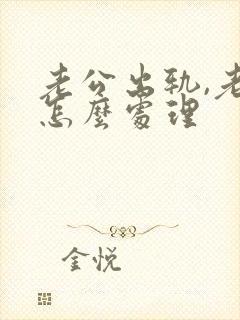 老公出轨,老
怎麼處理
金悦